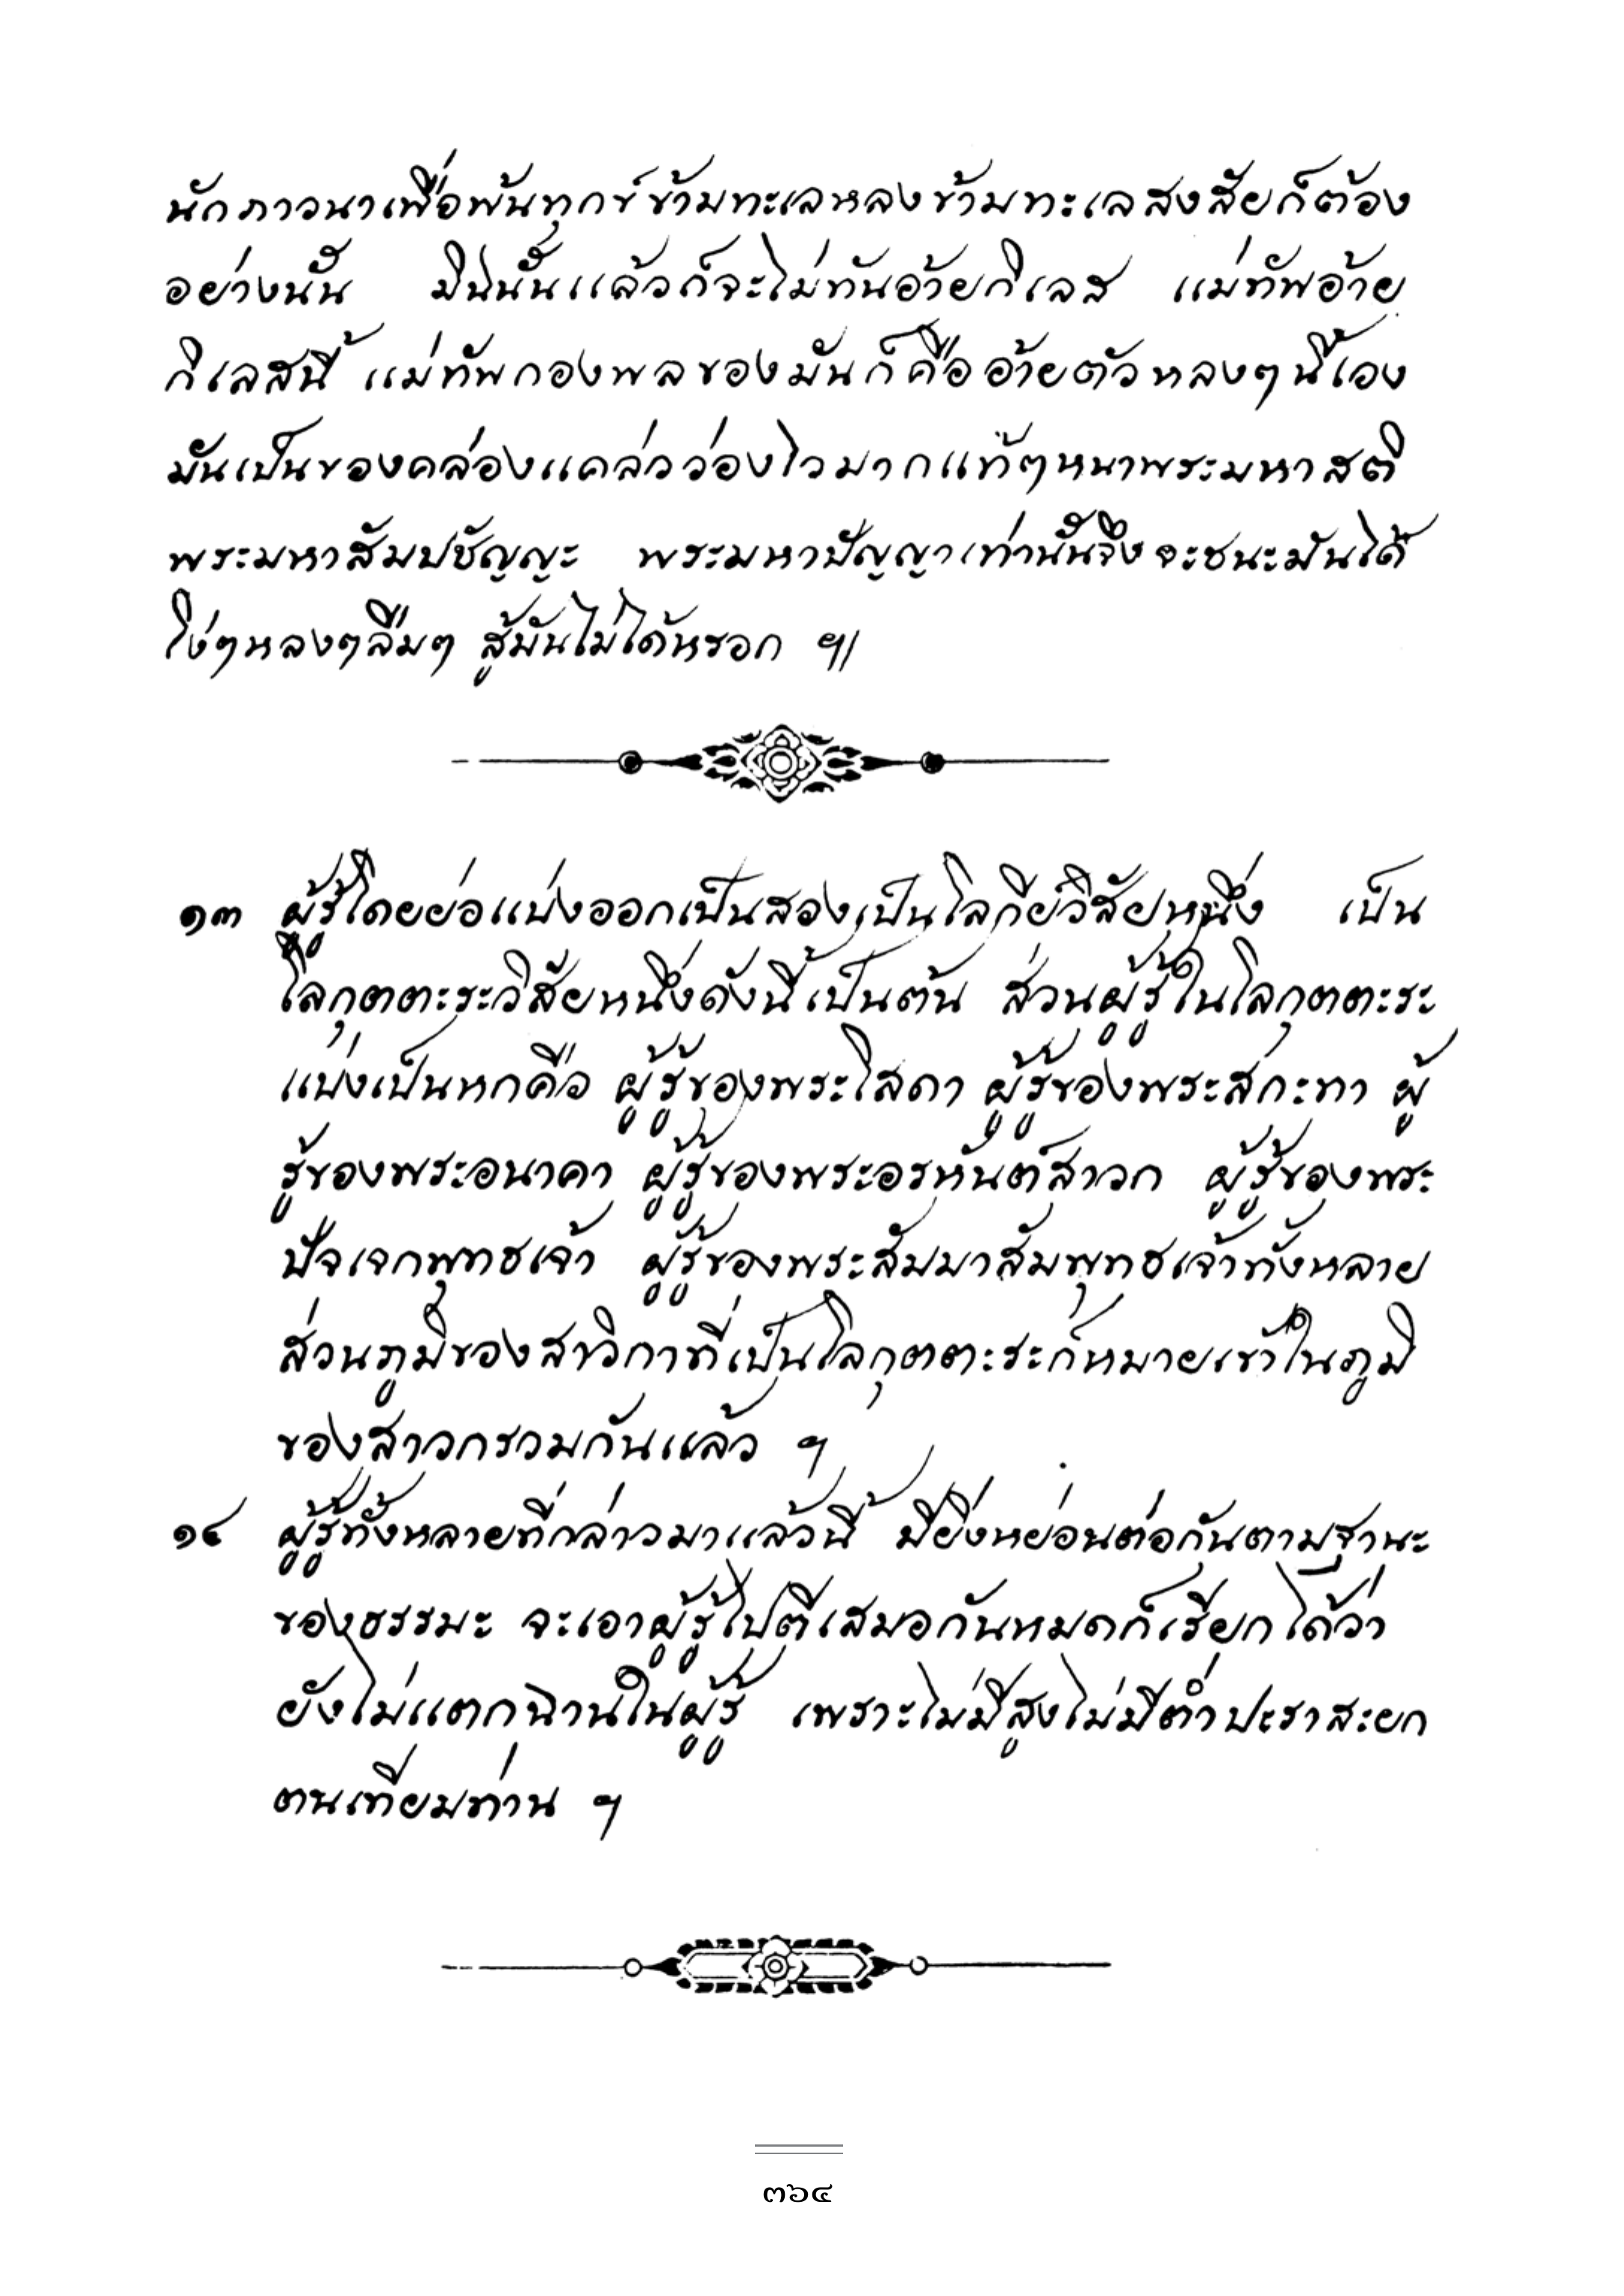 นักภาวนาเพื่อพ้นทุกข์ข้ามทะเลหลงข้ามทะเลสงสัยก็ต้อง
อย่างนั้น มิฉนั้นแล้วก็จะไม่ทันอ้ายกิเลส แม่ทัพอ้าย
กิเลสนี้ แม่ทัพกองพลของมันก็คือ อ้ายตัวหลงๆนี้เอง
มันเป็นของคล่องแคล่วว่องไวมากแท้ๆหนาพระมหาสติ
พระมหาสัมปชัญญะ พระมหาปัญญาเท่านั้นจึงจะชนะมันได้
โง่ๆหลงๆลืมๆ สู้มันไม่ได้หรอก ฯ|
๑๓ ผู้รู้โดยย่อแบ่งออกเป็นสองเป็นโลกีย์วิสัยหนึ่ง เป็น
โลกุตตะระวิสัยหนึ่งดังนี้เป็นต้น ส่วนผู้รู้ในโลกุตตะระ
แบ่งเป็นหกคือ ผู้รู้ของพระโสดา ผู้รู้ของพระสกะทา ผู้
รู้ของพระอนาคา ผู้รู้ของพระอรหันต์สาวก ผู้รู้ของพระ
ปัจเจกพุทธเจ้า ผู้รู้ของพระสัมมาสัมพุทธเจ้าทั้งหลาย
ส่วนภูมิของสาวิกาที่เป็นโลกุตตะระก็หมายเข้าในภูมิ
ของสาวกรวมกันแล้ว ฯ
๑๔ ผู้รู้ทั้งหลายที่กล่าวมาแล้วนี้ มียิ่งหย่อนต่อกันตามฐานะ
ของธรรมะ จะเอาผู้รู้ไปตีเสมอกันหมดก็เรียกได้ว่า
ยังไม่แตกฉานในผู้รู้ เพราะไม่มีสูงไม่มีต่ำปะราสะยก
ตนเทียมท่าน ฯ
๓๖๔